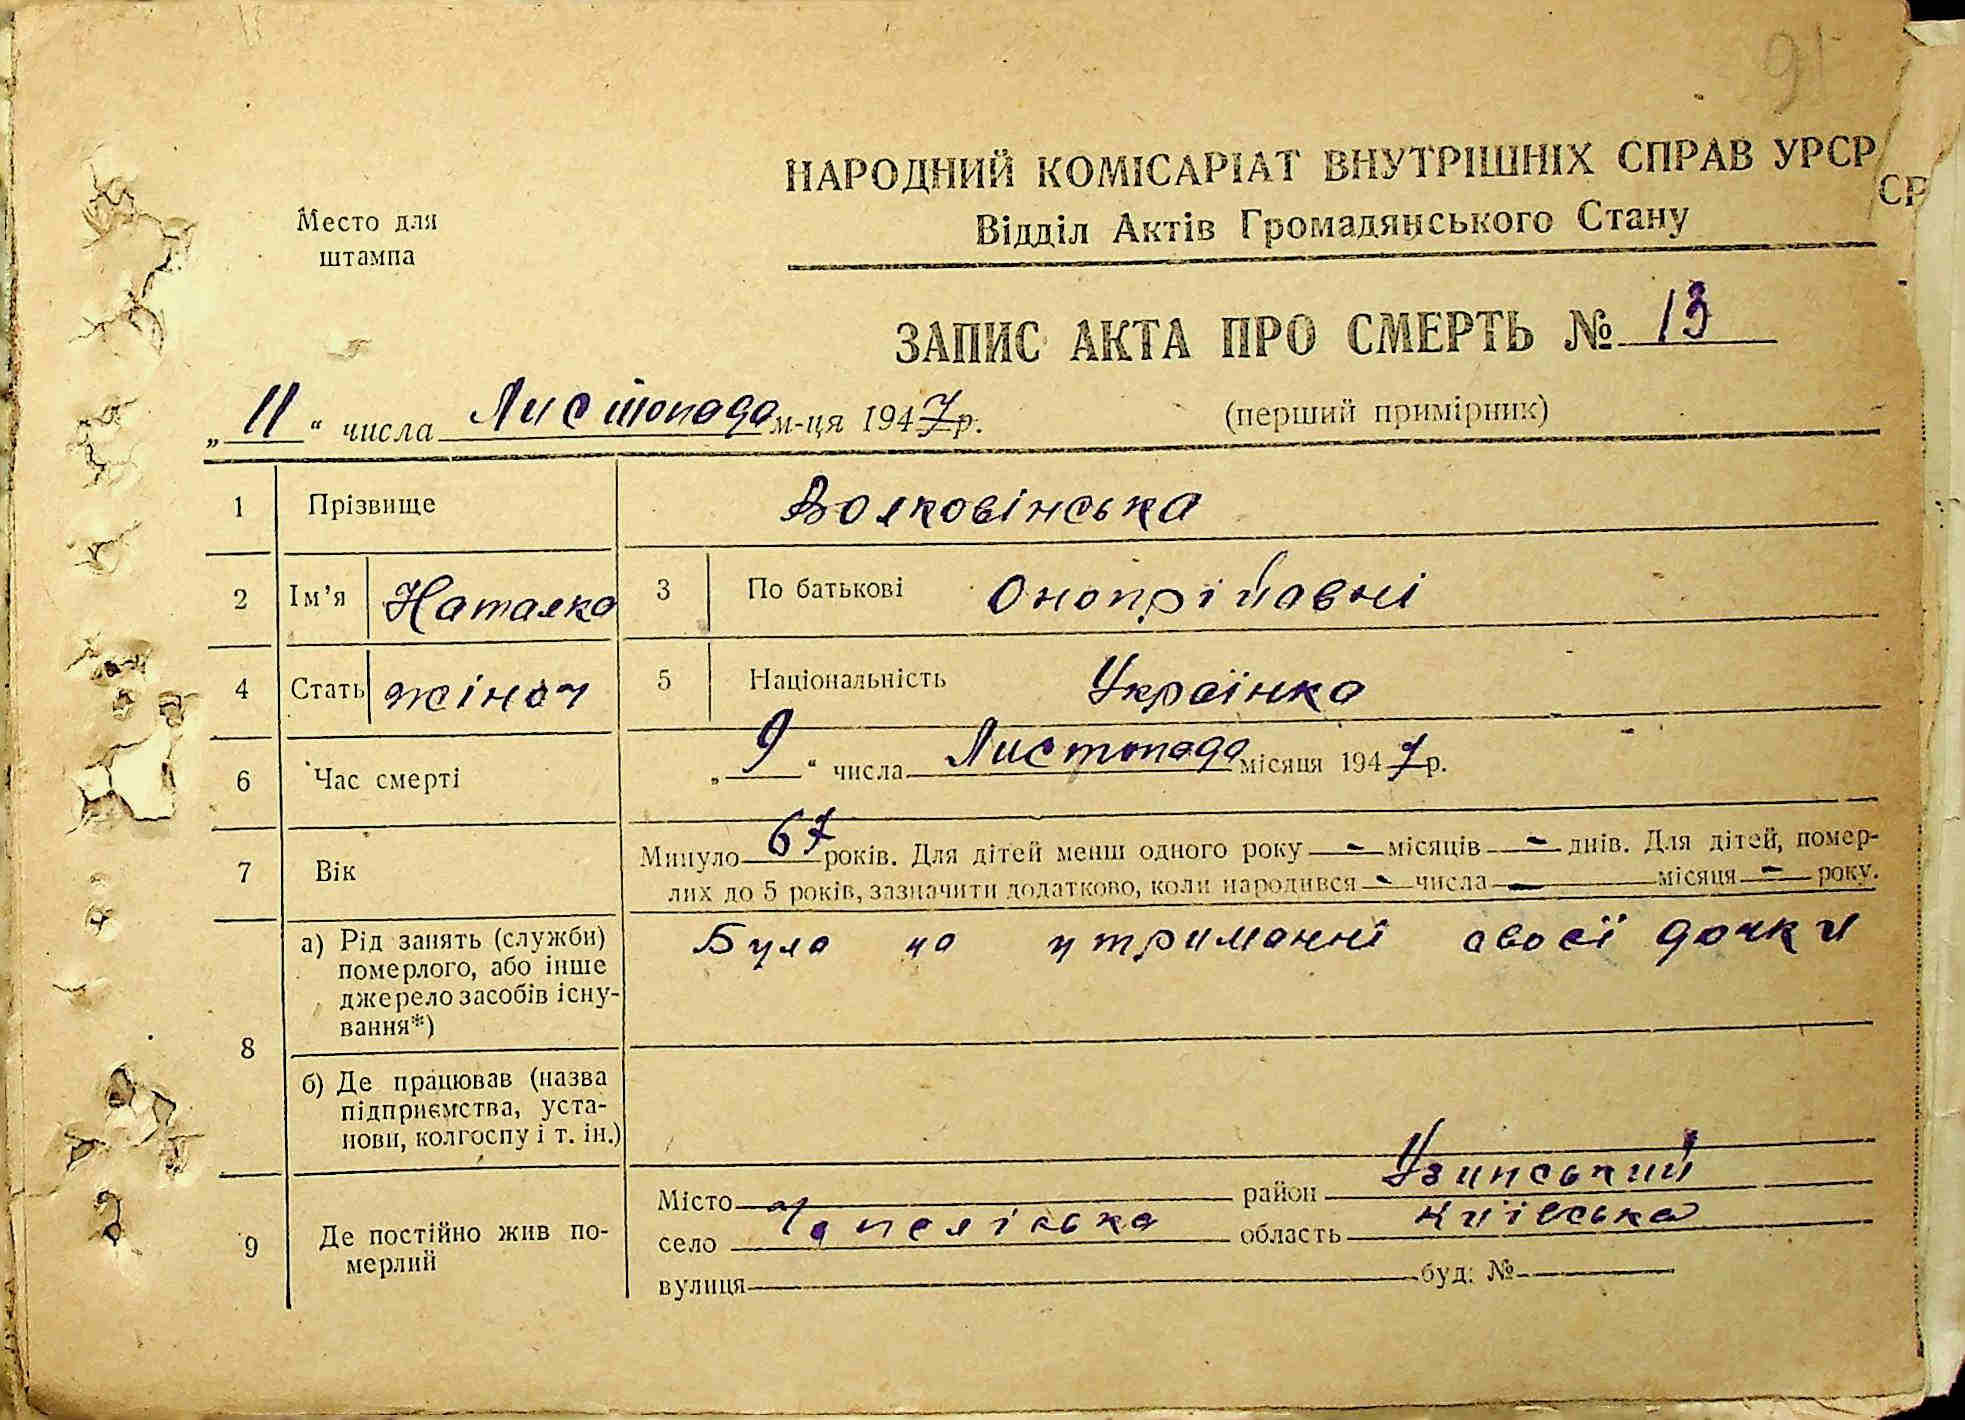 91
НАРОДНИЙ КОМІСАРІАТ ВНУТРІШНІХ СПРАВ УРСР
СР
Відділ Актів Громадянського Стану
Место для
штампа
ЗАПИС АКТА ПРО СМЕРТЬ № 13
„ 11 “ числа Листопада м-ця 1947 р.
(перший примірник)
1 Прізвище Волковінська
2 Ім’я Наталка 3 По батькові Онопрійовні
4 Стать жіноч 5 Національність Українка
6 Час смерті „ 9 “ числа Листопада місяця 1947 р.
7 Вік Минуло 67 років. Для дітей менш одного року - місяців - днів. Для дітей, помер-
лих до 5 років, зазначити додатково, коли народився - числа - місяця - року.
8 а) Рід занять (служби) померлого, або інше джерело засобів існу-
вання*) Була на утриманні своєї дочки
б) Де працював (назва
підприємства, уста-
нови, колгоспу і т. ін.)
9 Де постійно жив по-
мерлий
Місто район Узинський
село область Київська
вулиця буд. №